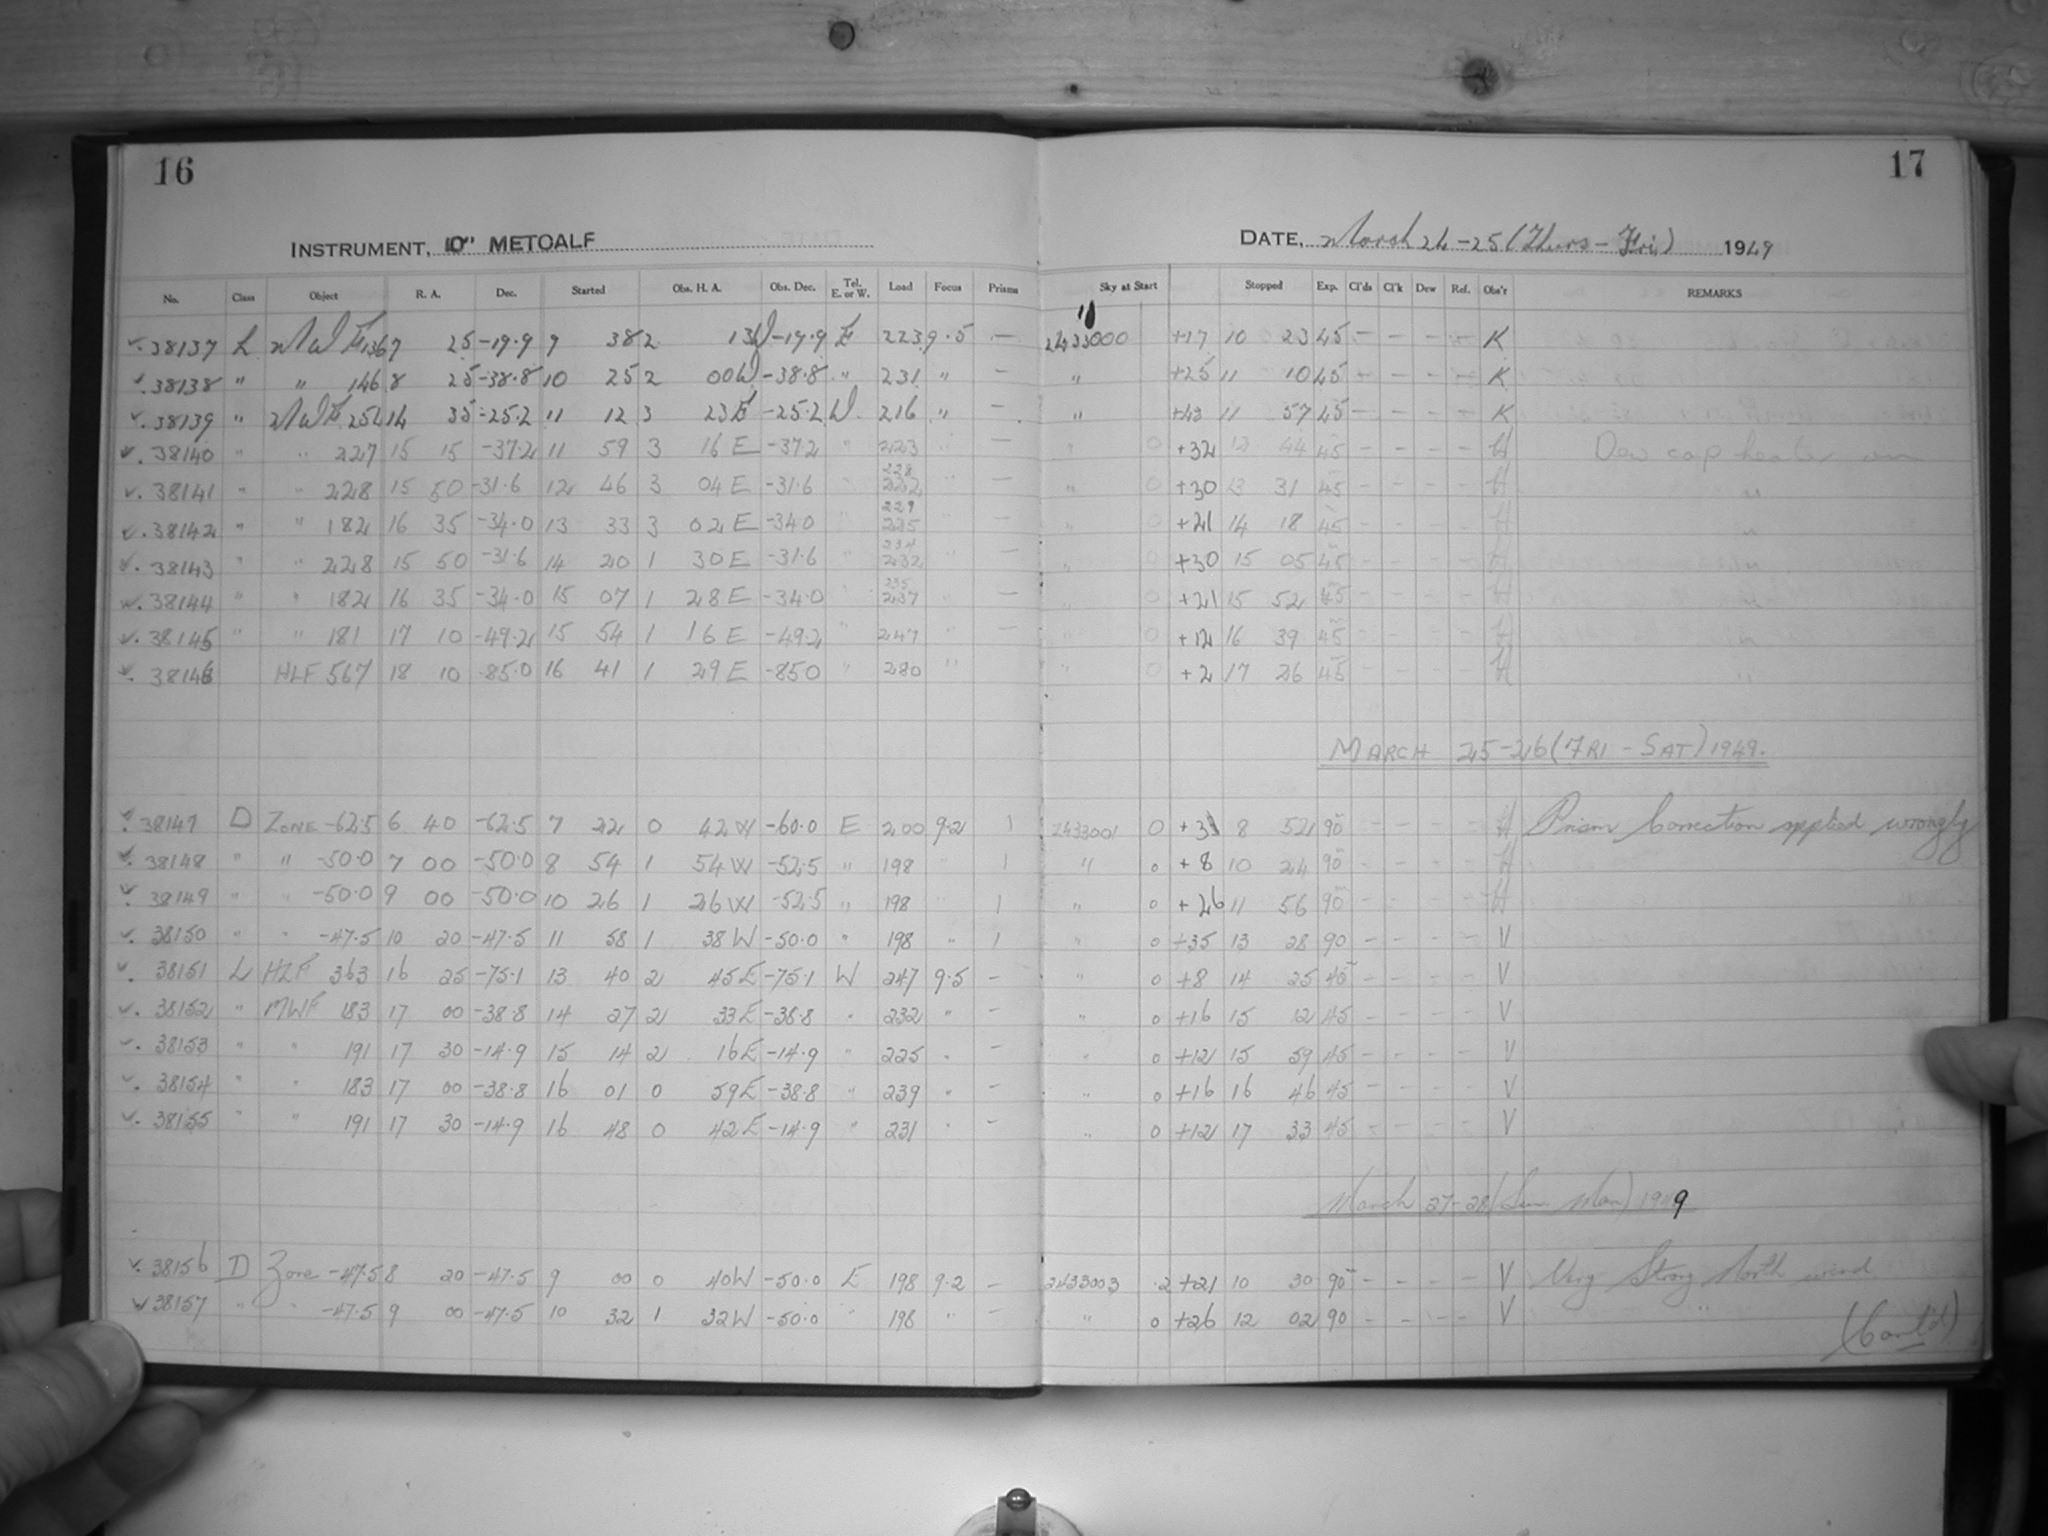 16
17
INSTRUMENT, 10" METCALF
DATE, March 24-25 (Thurs - Fri) 1949
No. Class Object R. A. Dec. Started Obs. H. A. Obs. Dec. Tel. E. or W. Load Focus Prisms Sky at Start Stopped Exp. Cl'ds Cl'k Dew Ref. Obs'r REMARKS
38137 L MWF 136 7 25 -19.9 9 38 2 13W -19.9 E 223 9.5 — 2433000 +17 10 23 45 – – – – K
38138 " " 146 8 25 -38.8 10 25 2 00W -38.8 " 231 " — " +25 11 10 45 – – – – K
38139 " MWF 254 14 35 -25.2 11 12 3 23E -25.2 W 216 " — " +43 11 57 45 – – – – K
38140 " " 227 15 15 -37.2 11 59 3 16E -37.2 " 223 " — " 0 +32 12 44 45 – – – – H Dew cap heater on
38141 " " 228 15 50 -31.6 12 46 3 04E -31.6 " 228 " — " 0 +30 13 31 45 – – – – H "
38142 " " 182 16 35 -34.0 13 33 3 02E -34.0 " 229 225 " — " 0 +21 14 18 45 – – – – H "
38143 " " 228 15 50 -31.6 14 20 1 30E -31.6 " 234 232 " — " 0 +30 15 05 45 – – – – H "
38144 " " 182 16 35 -34.0 15 07 1 28E -34.0 " 235 237 " — " 0 +21 15 52 45 – – – – H "
38145 " " 181 17 10 -49.2 15 54 1 16E -49.2 " 247 " — " 0 +12 16 39 45 – – – – H "
38146 HLF 567 18 10 -85.0 16 41 1 29E -85.0 " 280 " " 0 +2 17 26 45 – – – – H "
MARCH 25-26 (FRI - SAT) 1949.
38147 D ZONE -62.5 6 40 -62.5 7 22 0 42W -60.0 E 200 9.2 1 2433001 0 8 52 90 – – – – H Prism Correction applied wrongly
38148 " " -50.0 7 00 -50.0 8 54 1 54W -52.5 " 198 " 1 " 0 +8 10 24 90 – – – – H
38149 " " -50.0 9 00 -50.0 10 26 1 26W -52.5 " 198 " 1 " 0 +26 11 56 90 – – – – H
38150 " " -47.5 10 20 -47.5 11 58 1 38W -50.0 " 198 " 1 " 0 +35 13 28 90 – – – – V
38151 L HLF 363 16 25 -75.1 13 40 2 45E -75.1 W 247 9.5 – " 0 +8 14 25 45 – – – – V
38152 " MWF 183 17 00 -38.8 14 27 2 33E -38.8 " 232 " – " 0 +16 15 12 45 – – – – V
38153 " " 191 17 30 -14.9 15 14 2 16E -14.9 " 225 " – " 0 +12 15 59 45 – – – – V
38154 " " 183 17 00 -38.8 16 01 0 59E -38.8 " 239 " – " 0 +16 16 46 45 – – – – V
38155 " " 191 17 30 -14.9 16 48 0 42E -14.9 " 231 " – " 0 +12 17 33 45 – – – – V
March 27-28 (Sun. Mon) 1949
38156 D Zone -47.5 8 20 -47.5 9 00 0 40W -50.0 E 198 9.2 – 2433003 .2 +21 10 30 90 – – – – V Very Strong North wind
38157 " " -47.5 9 00 -47.5 10 32 1 32W -50.0 " 198 " – " 0 +26 12 02 90 – – – – V "
(Cont'd)